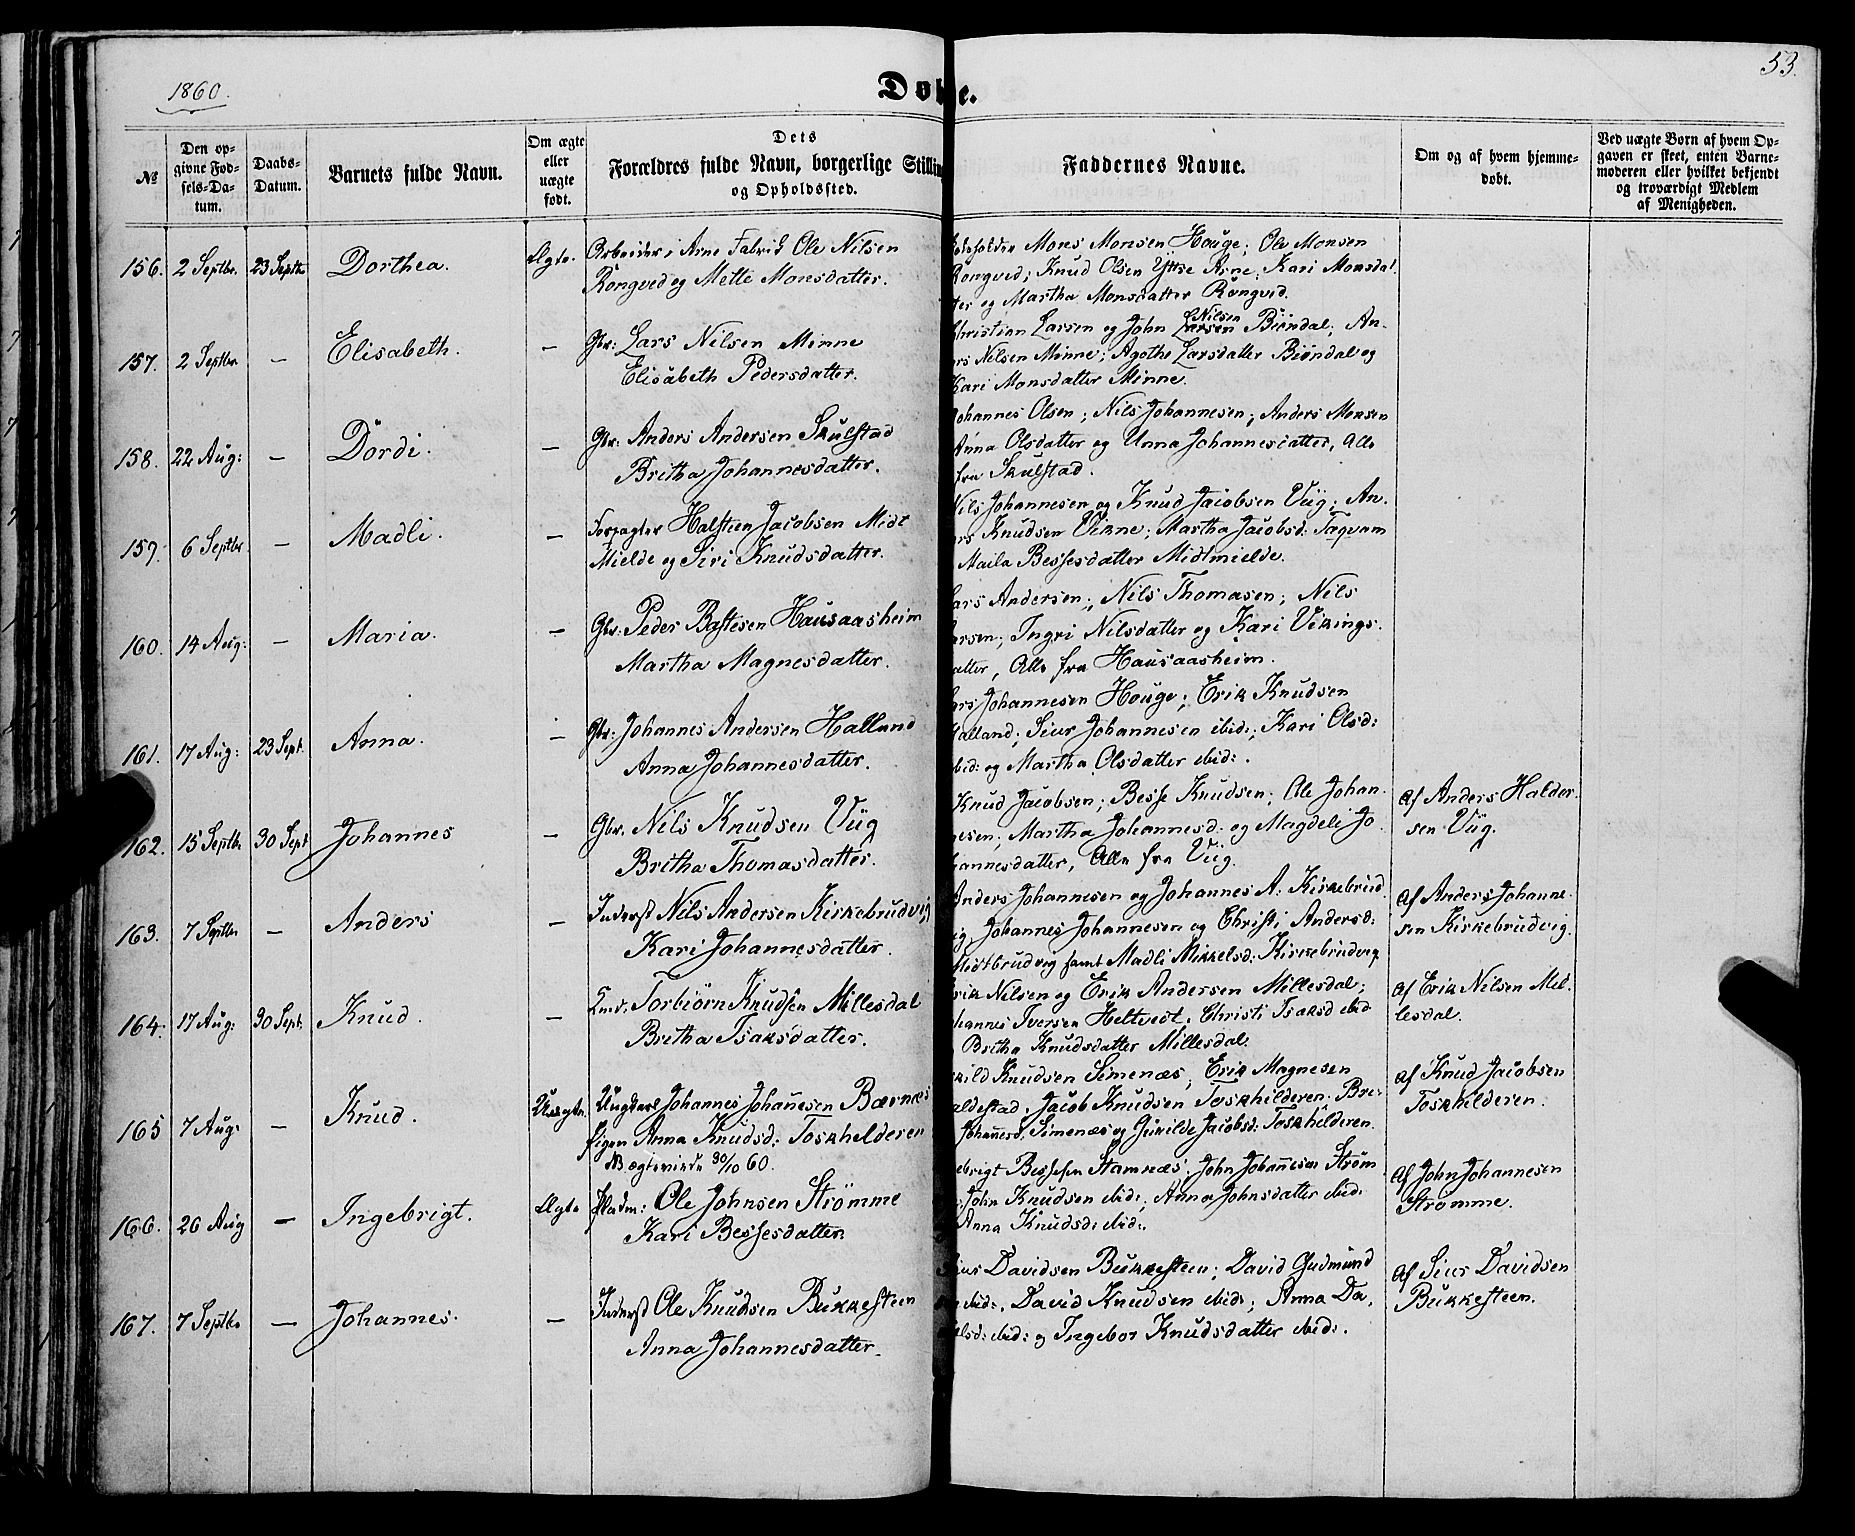 1860.
Dobte.
53.
№
Den opgivne Fodsels-Datum.
Daabs-Datum.
Barnets fulde Navn.
Om ægte eller uægte født.
Dets Forældres fulde Navn, borgerlige Stilling og Opholdssted.
Faddernes Navne.
Om og af hvem hjemmedobt.
Ved uægte Born af hvem Opgaven er skeet, enten Barnemoderen eller hvilket bekjendt og troværdigt Medlem af Menigheden.
156. 2 Septbr. 23 Septbr. Dorthea. Ægte.
Arbeider i Arne Fabrik Ole Nilsen
Rongved og Mette Monsdatter.
Mons Monsen Houge; Ole Monsen
Rongved; Knud Olsen Yttre Arne; Kari Monsdat
ter og Martha Monsdatter Rongved.
157. 2 Septbr. — Elisabeth. —
Gbr: Lars Nilsen Minne
Elisabeth Pedersdatter.
Christian Larsen og John Nilsen Biöndal; An-
ers Nilsen Minne; Agothe Larsdatter Biöndal og
Kari Monsdatter Minne.
158. 22 Aug: — Dördi. —
Gbr: Anders Andersen Skulstad
Britha Johannesdatter.
Johannes Olsen; Nils Johannesen; Anders Monsen
Anna Olsdatter og Unna Johannesdatter, Alle
fra Skulstad.
159. 6 Septbr. — Madli. —
Forpagter Halsteen Jacobsen Midt
Mielde og Siri Knudsdatter.
Nils Johannesen og Knud Jacobsen Viig; An-
ers Knudsen Vikne; Martha Jacobsd: Taqvam
Maila Bessesdatter Midtmielde.
160. 14 Aug: — Maria. —
Gbr: Peder Bastesen Hausaasheim
Martha Magnesdatter.
Lars Andersen; Nils Thomasen; Nils
arsen; Ingri Nilsdatter og Kari Vikings-
atter, Alle fra Hausaasheim.
161. 17 Aug: 23 Sept. Anna. —
Gbr: Johannes Andersen Halland
Anna Johannesdatter.
ars Johannesen Houge; Erik Knudsen
Halland; Siur Johannesen ibid:; Kari Olsd:
ibid: og Martha Olsdatter ibid:.
162. 15 Septbr 30 Sept Johannes —
Gbr. Nils Knudsen Viig
Britha Thomasdatter.
Knud Jacobsen; Besse Knudsen; Ole Johan-
nesen; Martha Johannesd: og Magdeli Jo-
hannesdatter, Alle fra Viig.
Af Anders Haldor-
sen Viig.
163. 7 Septbr — Anders —
Inderst Nils Andersen Kirkebrudvig
Kari Johannesdatter.
Anders Johannesen og Johannes A: Kirkebrud
ig Johannes Johannesen og Christi Andersd:
Midtbrudvig samt Madli Mikkelsd: Kirkebrudvig
Af Anders Johanne-
sen Kirkebrudvig.
164. 17 Aug: 30 Sept. Knud. —
Torbiörn Knudsen Millesdal
Britha Isaksdatter.
Erik Nilsen og Erik Andersen Millesdal;
hannes Iversen Heltvedt. Christi Isaksd ibid
Britha Knudsdatter Millesdal.
Af Erik Nilsen Mil-
lesdal.
165 7 Aug: — Knud. Uægte.
Ungkarl Johannes Johanesen Bærnæs
Pigen Anna Knudsd: Toskhilderen
NB ægteviede 30/10 60.
Knudsen Simenæs; Erik Magnesen
Jacob Knudsen Toskhilderen; Bri-
Johanesd. Simenæs og Gunilde Jacobsd: Toskhilderen.
Af Knud Jacobsen
Toskhilderen.
166. 26 Aug — Ingebrigt. Ægte
Pladm: Ole Johnsen Strömme
Kari Bessesdatter
ebrigt Bessesen Stamnæs; John Johanesen Ström
John Knudsen ibid:; Anna Johnsdatter ibid:
Anna Knudsd: ibid:.
Af John Johannesen
Strömme.
167. 7 Septbr — Johannes. —
Inderst Ole Knudsen Bukkesteen
Anna Johannesdatter.
iur Davidsen Bukkesteen; David Gudmund
ibid:, David Knudsen ibid:; Anna Da-
ibid: og Ingebor Knudsdatter ibid:.
Af Siur Davidsen
Bukkesteen.